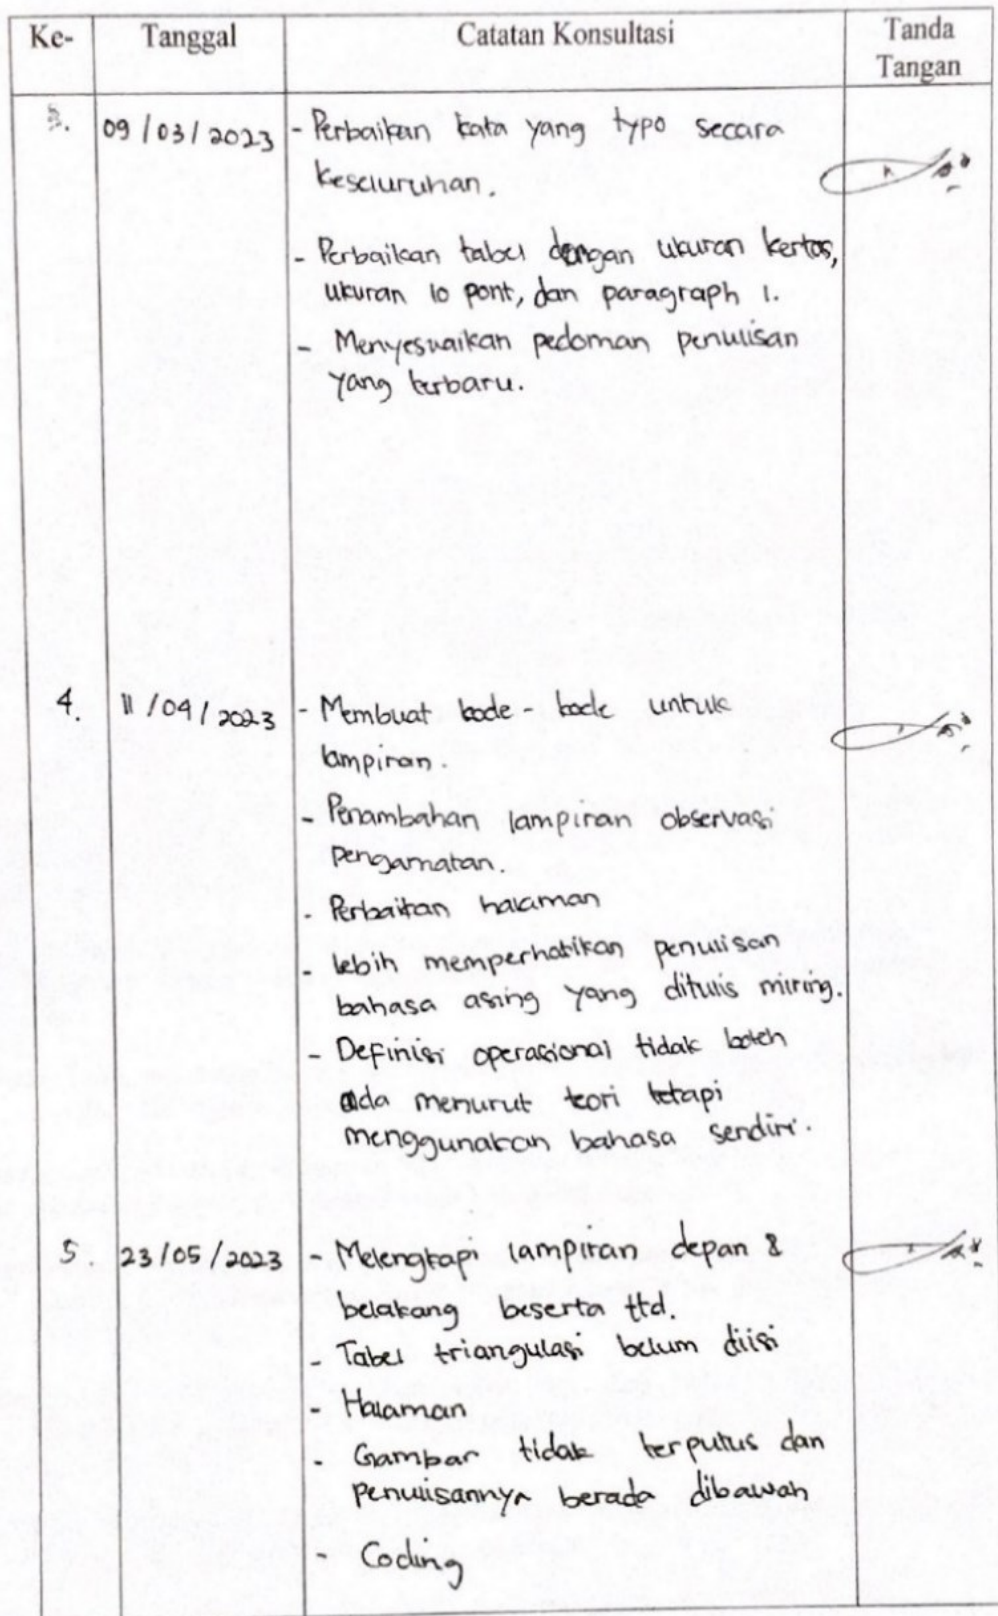 Ke- Tanggal Catatan Konsultasi Tanda
Tangan
3. 09/03/2023 - Perbaikan kata yang typo secara
keseluruhan.
- Perbaikan tabel dengan ukuran kertas,
ukuran 10 pont, dan paragraph 1.
- Menyesuaikan pedoman penulisan
yang terbaru.
4. 11/04/2023 - Membuat kode-kode untuk
lampiran.
- Penambahan lampiran observasi
pengamatan.
- Perbaikan halaman
- lebih memperhatikan penulisan
bahasa asing yang ditulis miring.
- Definisi operasional tidak boleh
ada menurut teori tetapi
menggunakan bahasa sendiri.
5. 23/05/2023 - Melengkapi lampiran depan &
belakang beserta ttd.
- Tabel triangulasi belum diisi
- Halaman
- Gambar tidak terputus dan
penulisannya berada dibawah
- Coding